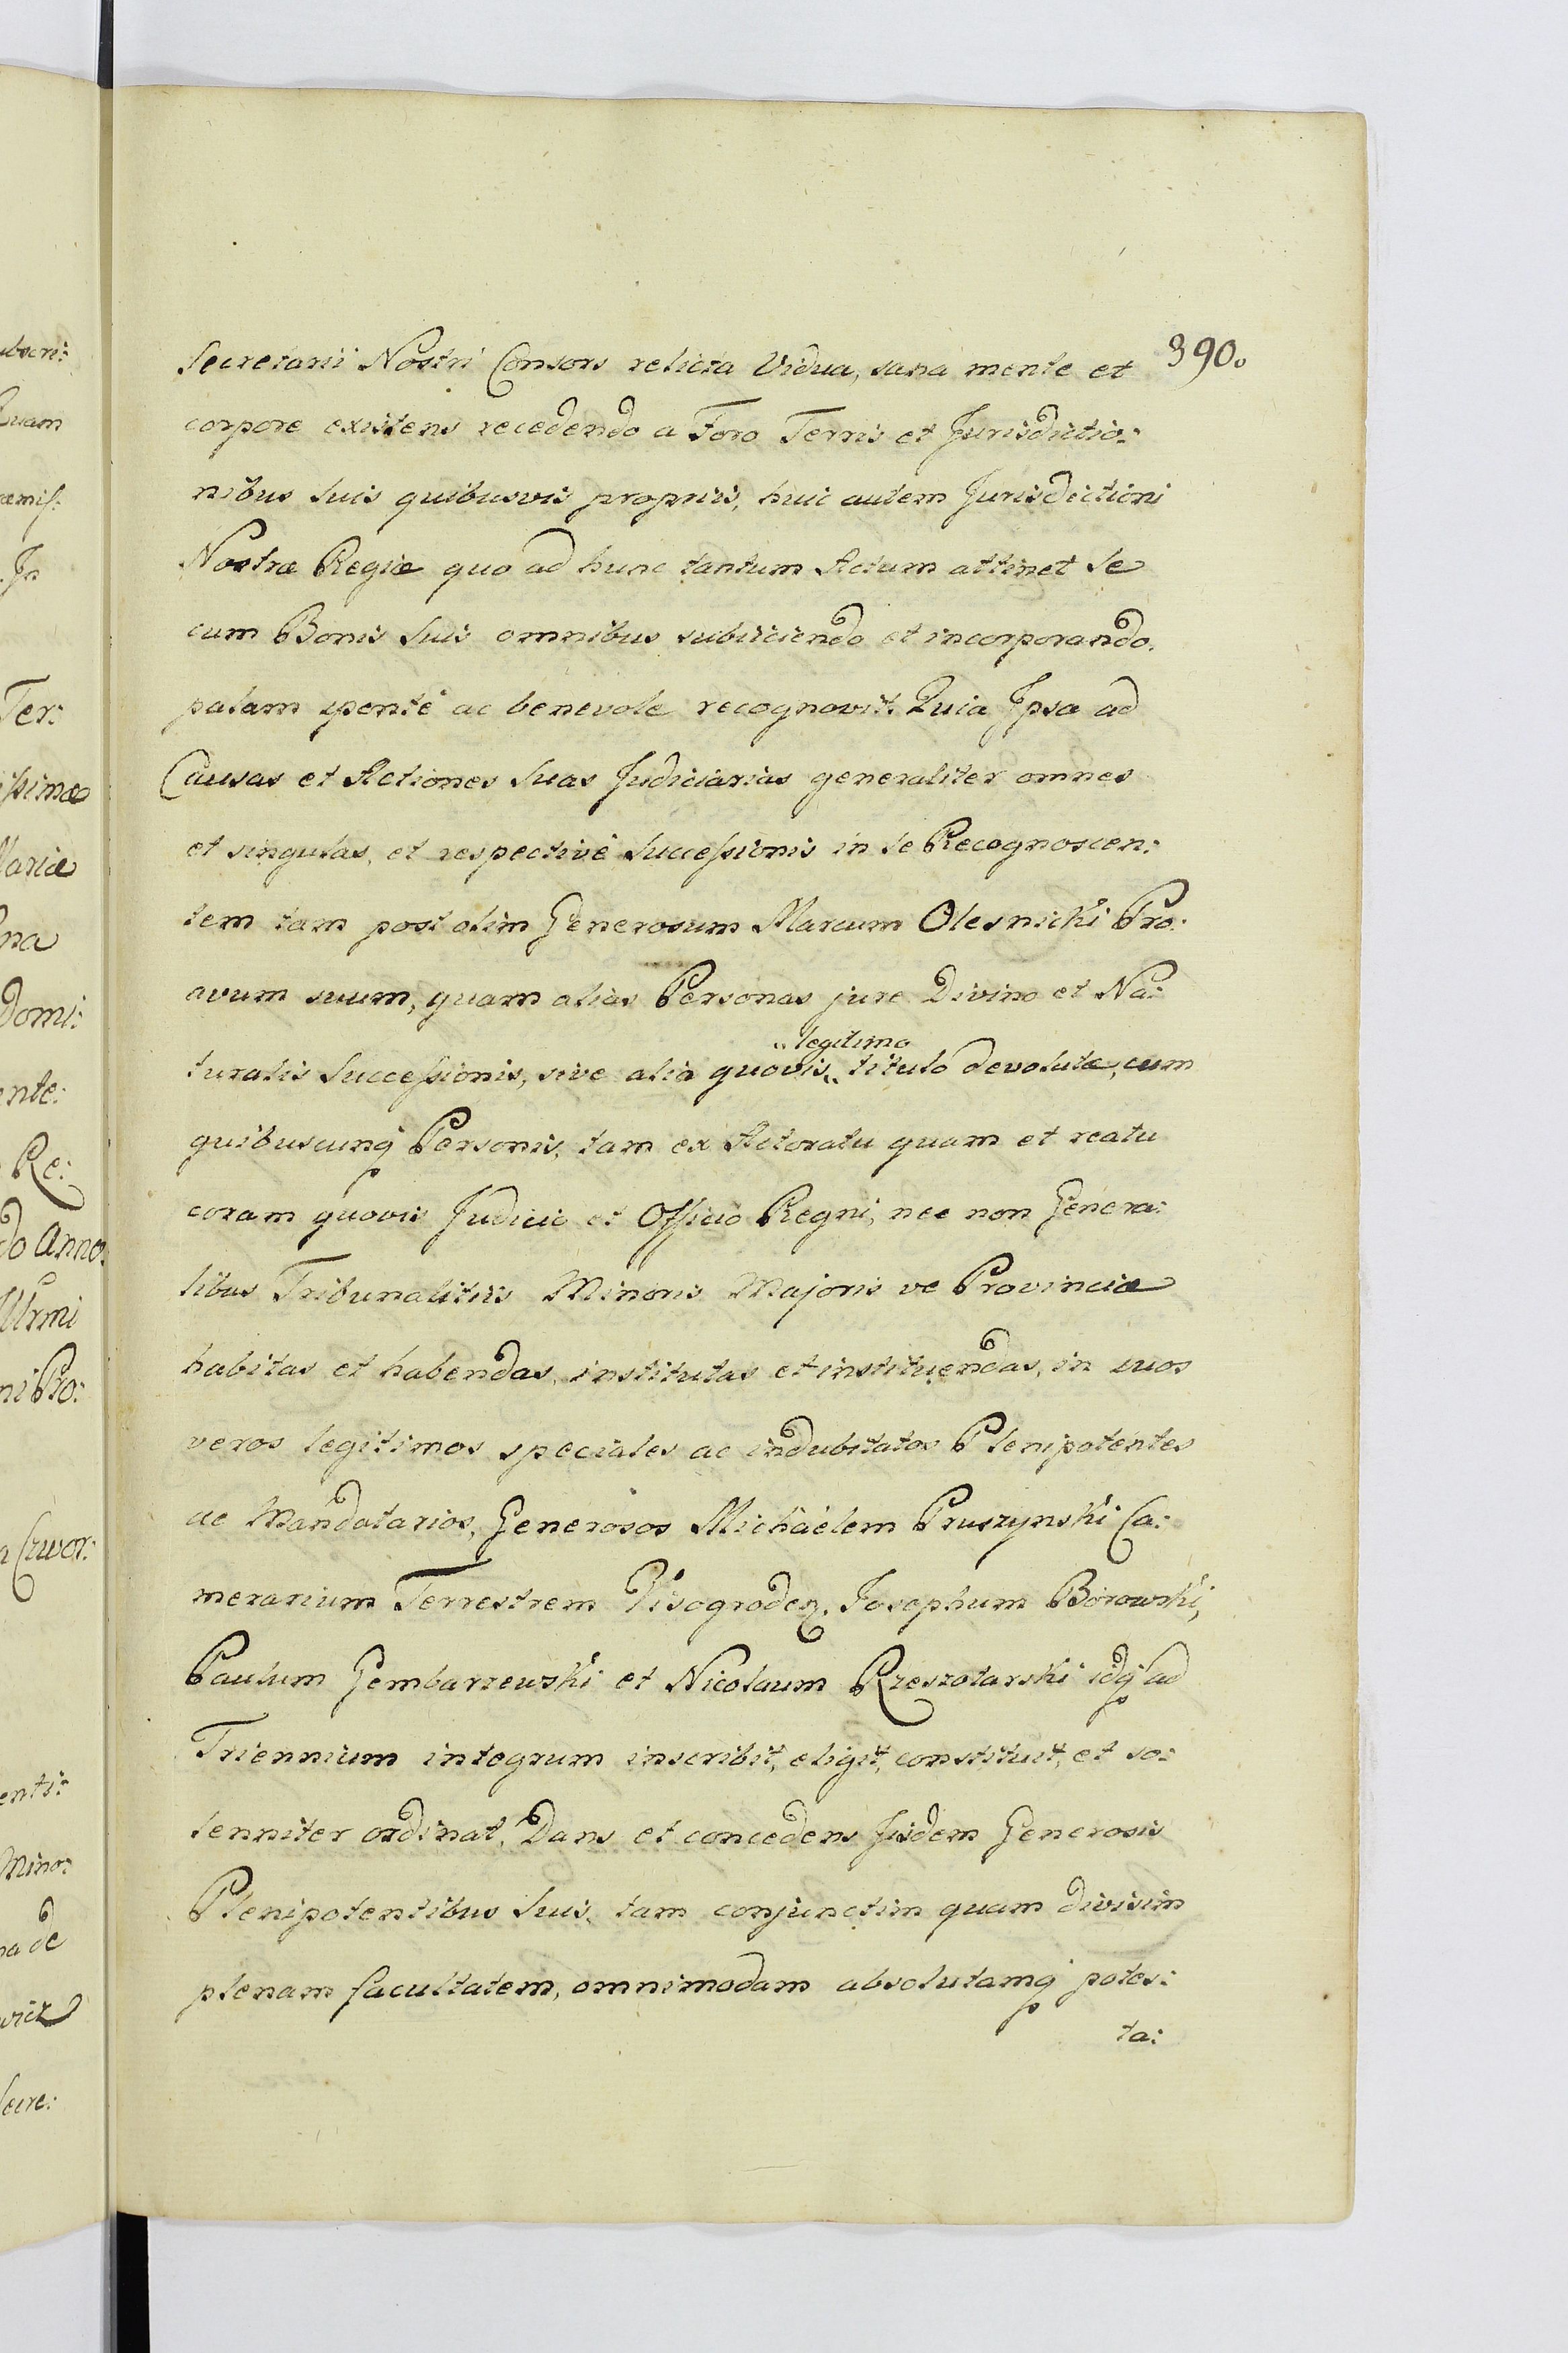 390.
Secretarii Nostri Consors relicta Vidua, sana mente et
corpore existens recedendo a Foro Terris et Jurisdictio:
nibus suis quibusvis propriis, huic autem Jurisdictioni
Nostræ Regiæ quo ad hunc tantum Actum attinet se
cum Bonis suis omnibus subiiciendo et incorporando.
palam spontè ac benevole recognovit. Quia Ipsa ad
Causas et Actiones suas Judiciarias generaliter omnes
et singulas, et respectivè Successionis in se Recognoscen:
tem tam post olim Generosum Marcum Olesnicki Pro:
avum suum, quam alias Personas jure Divino et Na:
legitimo
turalis Successionis, sive alio quovis titulo devolutæ, cum
quibuscunq Personis, tam ex Actoratu quam et reatu
coram quovis Judicio et Officio Regni, nec non Genera:
libus Tribunalitiis Minoris Majoris ve Provinciæ
habitas et habendas, institutas et instituendas, in suos
veros legitimos speciales ac indubitatos Plenipotentes
ac Mandatarios, Generosos Michaëlem Pruszynski Ca:
merarium Terrestrem Visogroden. Josephum Borowski,
Paulum Gembarzewski et Nicolaum Rzeszotarski idq ad
Triennium integrum inscribit, eligit, constituit, et so:
lenniter ordinat, Dans et concedens Iisdem Generosis
Plenipotentibus suis, tam conjunctim quam divisim
plenam facultatem, omnimodam absolutamq potes:
ta: